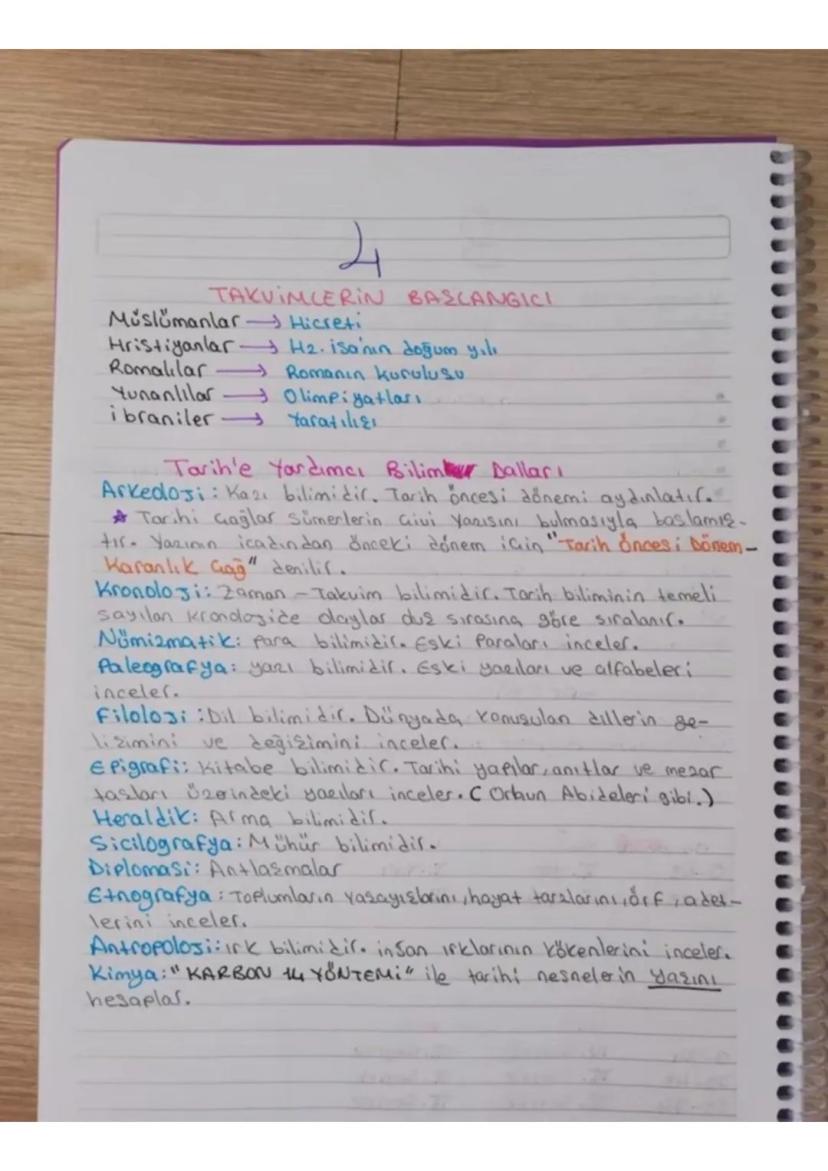 4
TAKVİMLERİN BAŞLANGICI
Müslümanlar → Hicreti
Hristiyanlar → Hz. İsa'nın doğum yılı
Romalılar → Romanın kuruluşu
Yunanlılar → Olimpiyatları
İbraniler → Yaratılışı
Tarih'e Yardımcı Bilim Dalları
Arkeoloji: Kazı bilimidir. Tarih öncesi dönemi aydınlatır.
★ Tarihi Çağlar Sümerlerin Çivi Yazısını bulmasıyla başlamış-
tır. Yazının icadından önceki dönem için "Tarih Öncesi Dönem-
Karanlık Çağ" denilir.
Kronoloji: Zaman - Takvim bilimidir. Tarih biliminin temeli
sayılan kronolojide olaylar oluş sırasına göre sıralanır.
Nümizmatik: Para bilimidir. Eski Paraları inceler.
Paleografya: yazı bilimidir. Eski yazıları ve alfabeleri
inceler.
Filoloji: Dil bilimidir. Dünyada konuşulan dillerin ge-
lişimini ve değişimini inceler.
Epigrafi: Kitabe bilimidir. Tarihi yapılar, anıtlar ve mezar
taşları üzerindeki yazıları inceler. (Orhun Abideleri gibi.)
Heraldik: Arma bilimidir.
Sicilografya: Mühür bilimidir.
Diplomasi: Antlaşmalar
Etnografya: Toplumların yaşayışlarını, hayat tarzlarını, örf, adet-
lerini inceler.
Antropoloji: ırk bilimidir. insan ırklarının kökenlerini inceler.
Kimya: "KARBON 14 YÖNTEMİ" ile tarihi nesnelerin yaşını
hesaplar.